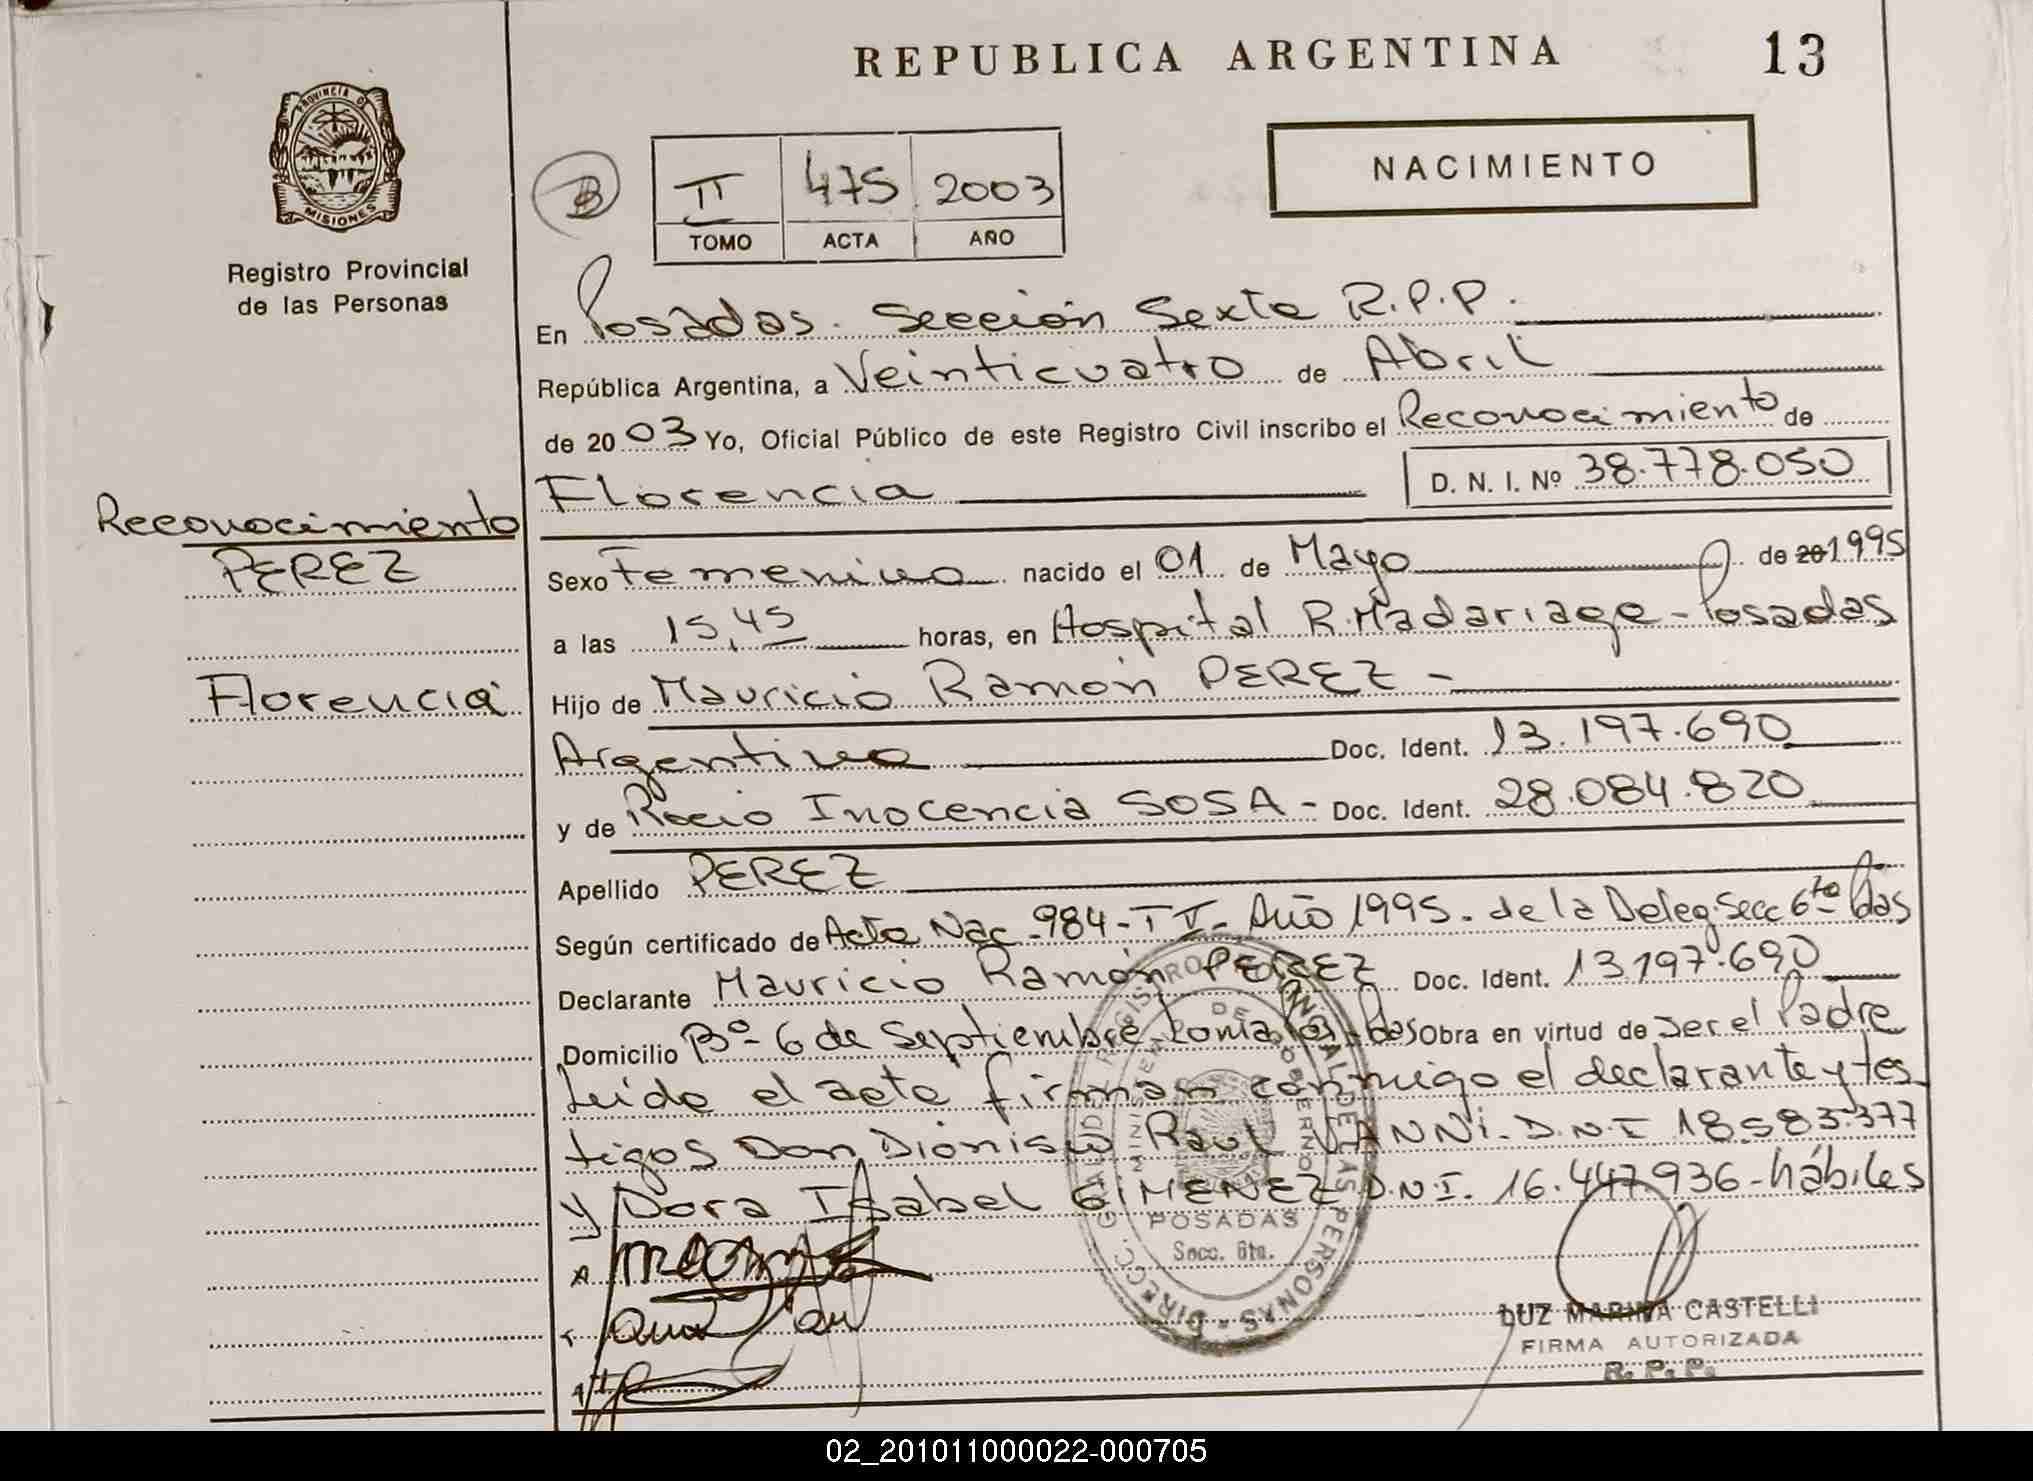 REPUBLICA ARGENTINA 13
PROVINCIA DE
MISIONES
Registro Provincial
de las Personas
B
II 475 2003
TOMO ACTA AÑO
NACIMIENTO
En Posadas. Sección Sexta R.P.P.
República Argentina, a Veinticuatro de Abril
de 2003 Yo, Oficial Público de este Registro Civil inscribo el Reconocimiento de
Florencia D. N. I. Nº 38.778.050
Reconocimiento
PEREZ
Florencia
Sexo Femenino nacido el 01 de Mayo de 20 1995
a las 15,45 horas, en Hospital R. Madariaga - Posadas
Hijo de Mauricio Ramón PEREZ -
Argentino Doc. Ident. 13.197.690
y de Rocio Inocencia SOSA - Doc. Ident. 28.084.820
Apellido PEREZ
Según certificado de Acta Nac - 984 - T V - Año 1995 - de la Deleg. Secc 6ta Pdas
Declarante Mauricio Ramón PEREZ Doc. Ident. 13.197.690
Domicilio Bº 6 de Septiembre Pdas Obra en virtud de Ser el Padre
Leida el acta firman conmigo el declarante y tes
tigos Don Dionisio Raul VANNI - D.N.I 18.583.377
y Dora Isabel GIMENEZ D.N.I. 16.447.936 - hábiles
DIRECC. GRAL DE REGISTRO PROVINCIAL DE LAS PERSONAS
MINISTERIO DE GOBIERNO
POSADAS
Secc. 6ta.
LUZ MARINA CASTELLI
FIRMA AUTORIZADA
R. P. P.
02_201011000022-000705